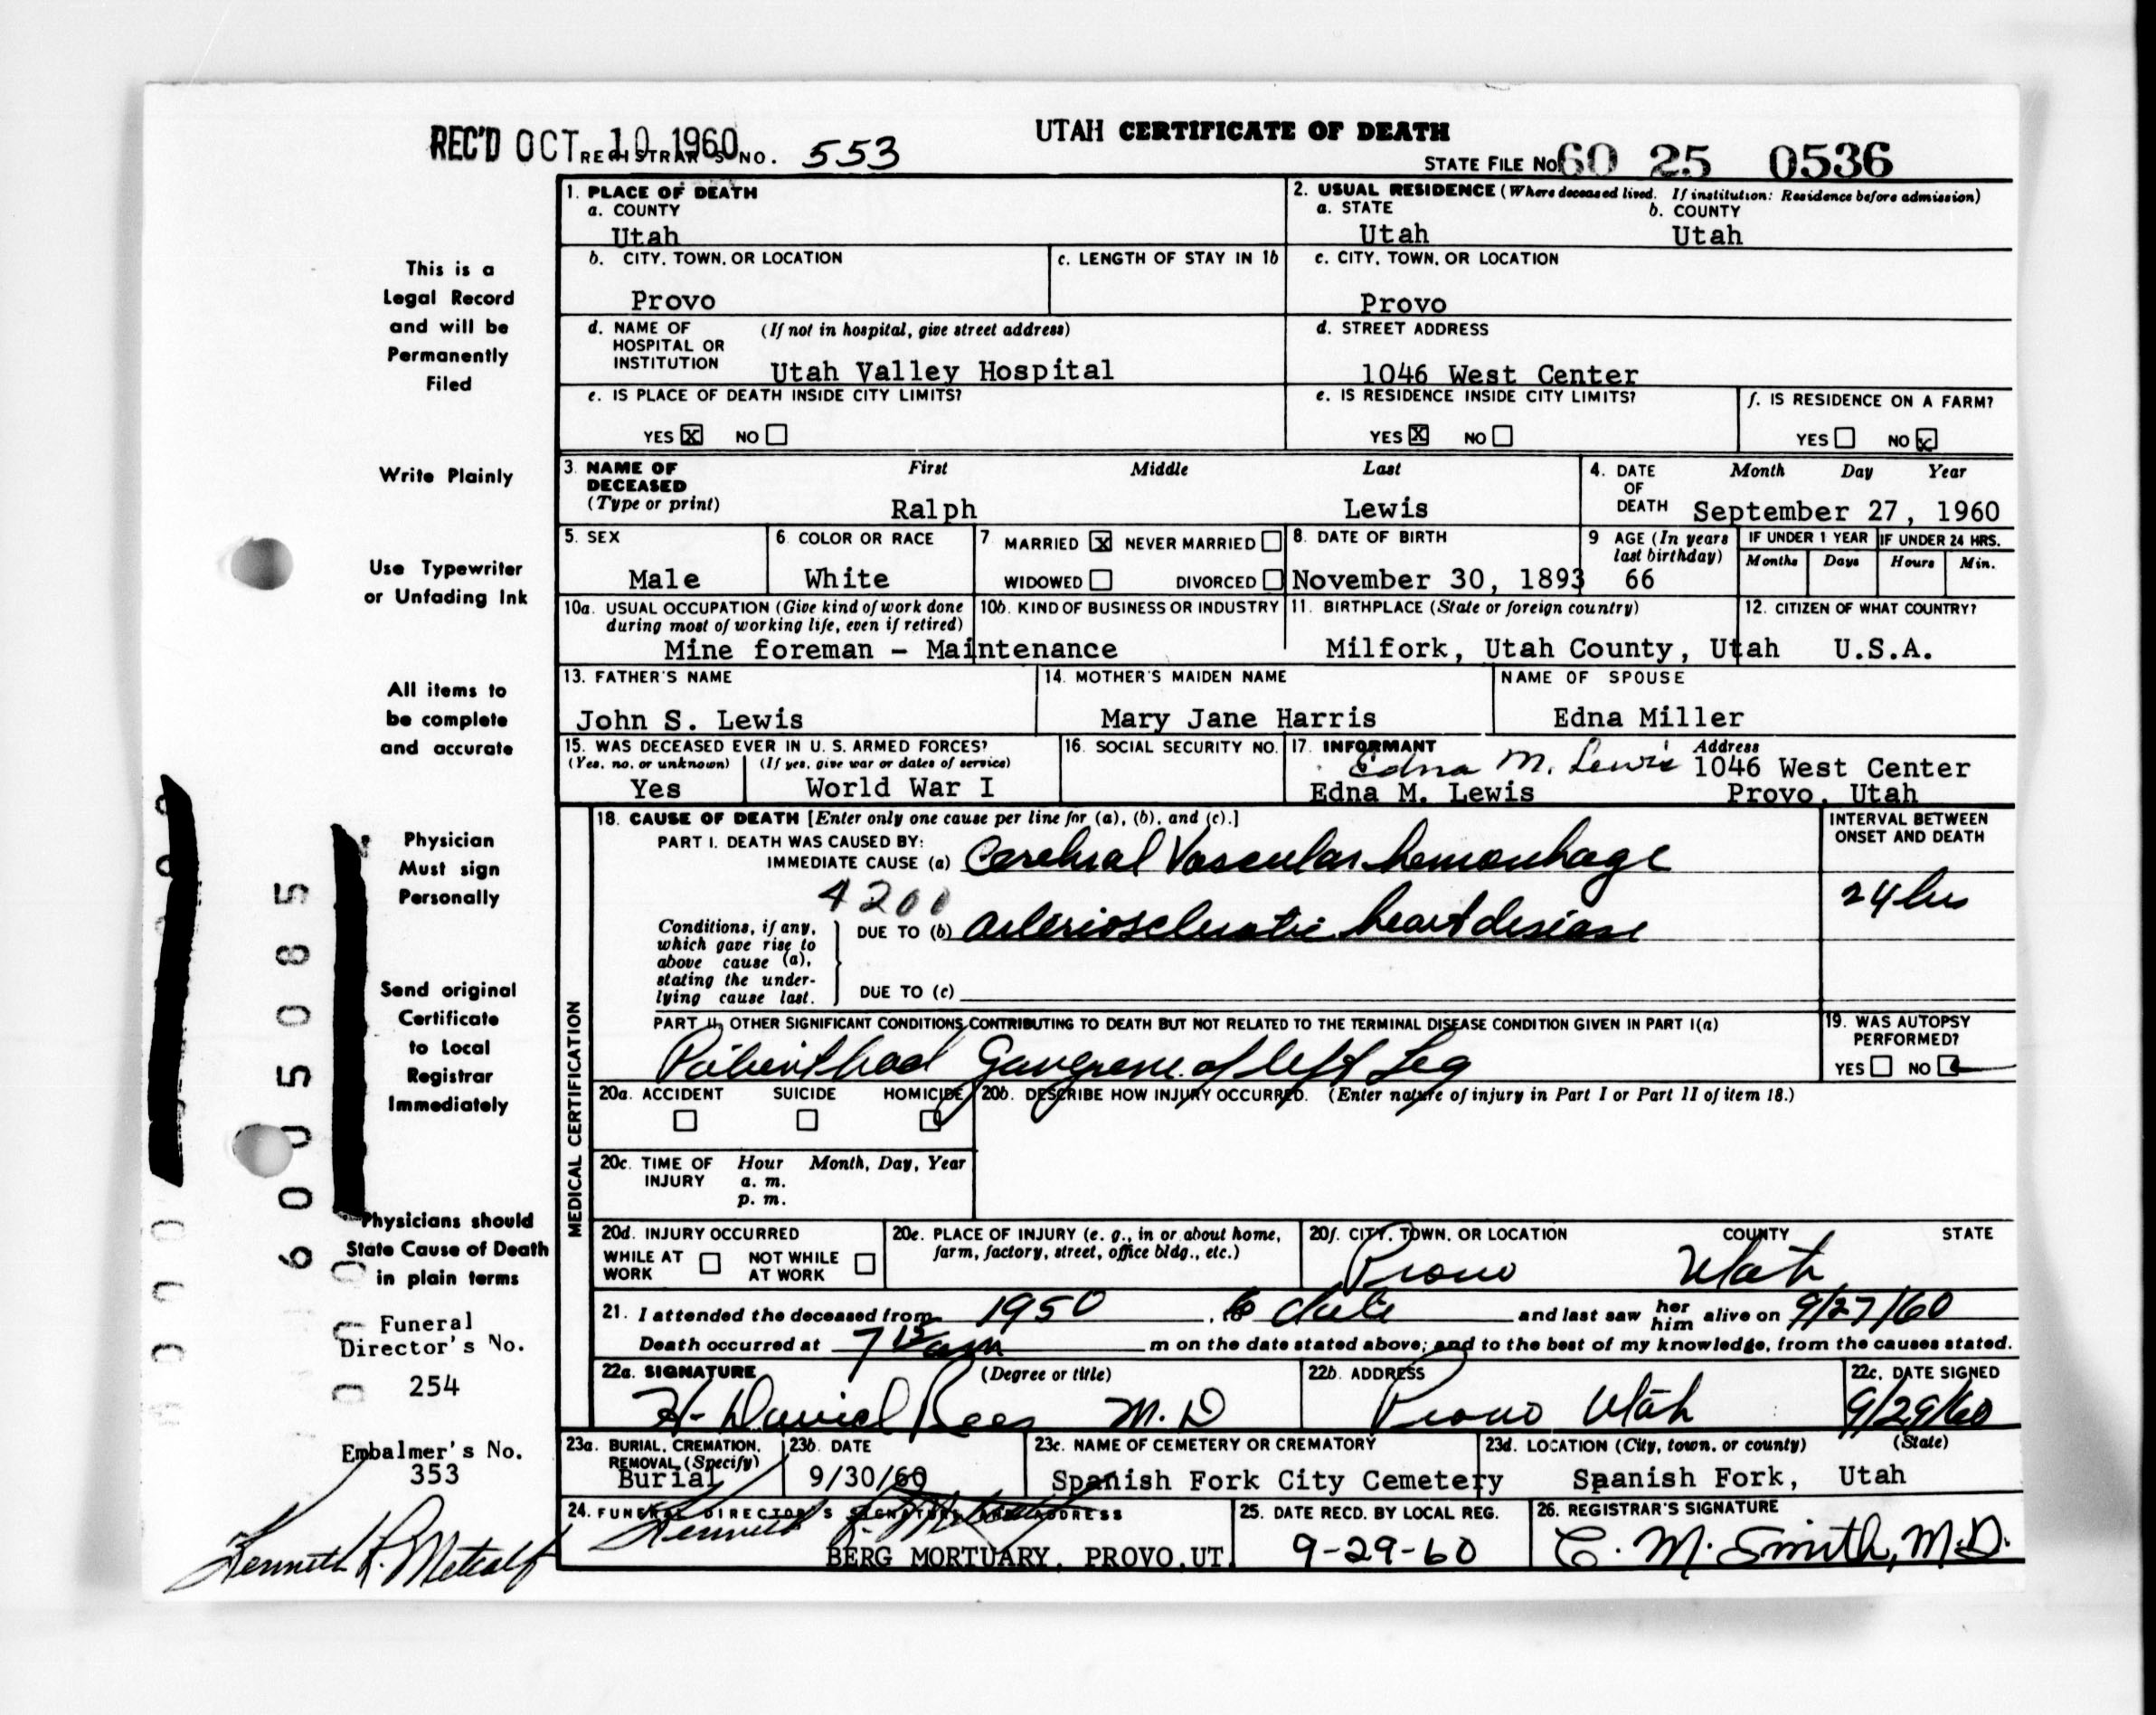 UTAH CERTIFICATE OF DEATH
REC'D OCT 10 1960 REGISTRAR'S NO. 553
STATE FILE NO. 60 25 0536
This is a
Legal Record
and will be
Permanently
Filed
Write Plainly
Use Typewriter
or Unfading Ink
All items to
be complete
and accurate
Physician
Must sign
Personally
Send original
Certificate
to Local
Registrar
Immediately
Physicians should
State Cause of Death
in plain terms
Funeral
Director's No.
254
Embalmer's No.
353
Kenneth R. Metcalf
6005085
1. PLACE OF DEATH
a. COUNTY
Utah
2. USUAL RESIDENCE (Where deceased lived. If institution: Residence before admission)
a. STATE b. COUNTY
Utah Utah
b. CITY, TOWN, OR LOCATION
Provo
c. LENGTH OF STAY IN 1b
c. CITY, TOWN, OR LOCATION
Provo
d. NAME OF HOSPITAL OR INSTITUTION (If not in hospital, give street address)
Utah Valley Hospital
d. STREET ADDRESS
1046 West Center
e. IS PLACE OF DEATH INSIDE CITY LIMITS?
YES X NO
e. IS RESIDENCE INSIDE CITY LIMITS?
YES X NO
f. IS RESIDENCE ON A FARM?
YES NO X
3. NAME OF DECEASED (Type or print) First Middle Last
Ralph Lewis
4. DATE OF DEATH Month Day Year
September 27, 1960
5. SEX
Male
6. COLOR OR RACE
White
7. MARRIED X NEVER MARRIED
WIDOWED DIVORCED
8. DATE OF BIRTH
November 30, 1893
9 AGE (In years last birthday)
66
IF UNDER 1 YEAR IF UNDER 24 HRS.
Months Days Hours Min.
10a. USUAL OCCUPATION (Give kind of work done during most of working life, even if retired)
10b. KIND OF BUSINESS OR INDUSTRY
Mine foreman - Maintenance
11. BIRTHPLACE (State or foreign country)
Milfork, Utah County, Utah
12. CITIZEN OF WHAT COUNTRY?
U.S.A.
13. FATHER'S NAME
John S. Lewis
14. MOTHER'S MAIDEN NAME
Mary Jane Harris
NAME OF SPOUSE
Edna Miller
15. WAS DECEASED EVER IN U. S. ARMED FORCES?
(Yes, no, or unknown) (If yes, give war or dates of service)
Yes World War I
16. SOCIAL SECURITY NO.
17. INFORMANT Address
Edna M. Lewis 1046 West Center
Edna M. Lewis Provo, Utah
MEDICAL CERTIFICATION
18. CAUSE OF DEATH [Enter only one cause per line for (a), (b), and (c).]
INTERVAL BETWEEN ONSET AND DEATH
PART I. DEATH WAS CAUSED BY:
IMMEDIATE CAUSE (a) Cerebral Vascular hemorrhage
4200
24 hrs
Conditions, if any, which gave rise to above cause (a), stating the underlying cause last.
DUE TO (b) arteriosclerotic heart disease
DUE TO (c)
PART II. OTHER SIGNIFICANT CONDITIONS CONTRIBUTING TO DEATH BUT NOT RELATED TO THE TERMINAL DISEASE CONDITION GIVEN IN PART I(a)
Patient had Gangrene of left Leg
19. WAS AUTOPSY PERFORMED?
YES NO
20a. ACCIDENT SUICIDE HOMICIDE
20b. DESCRIBE HOW INJURY OCCURRED. (Enter nature of injury in Part I or Part II of item 18.)
20c. TIME OF INJURY Hour Month, Day, Year
a. m.
p. m.
20d. INJURY OCCURRED
WHILE AT WORK NOT WHILE AT WORK
20e. PLACE OF INJURY (e. g., in or about home, farm, factory, street, office bldg., etc.)
20f. CITY, TOWN, OR LOCATION COUNTY STATE
Provo Utah
21. I attended the deceased from 1950, to date and last saw her him alive on 9/27/60
Death occurred at 7 15 am m on the date stated above; and to the best of my knowledge, from the causes stated.
22a. SIGNATURE (Degree or title)
H. David Rees M.D
22b. ADDRESS
Provo Utah
22c. DATE SIGNED
9/29/60
23a. BURIAL, CREMATION, REMOVAL (Specify)
Burial
23b. DATE
9/30/60
23c. NAME OF CEMETERY OR CREMATORY
Spanish Fork City Cemetery
23d. LOCATION (City, town, or county) (State)
Spanish Fork, Utah
24. FUNERAL DIRECTOR'S SIGNATURE AND ADDRESS
Kenneth R. Metcalf
BERG MORTUARY, PROVO, UT.
25. DATE RECD. BY LOCAL REG.
9-29-60
26. REGISTRAR'S SIGNATURE
C. M. Smith, M.D.